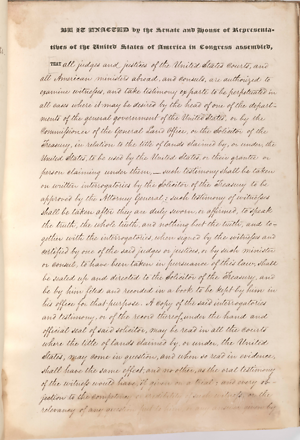 BE IT ENACTED by the Senate and House of Representa-
tives of the United States of America in Congress assembled,
THAT all judges and justices of the United States Courts, and
all American ministers abroad, and consuls, are authorized to
examine witnesses, and take testimony ex parte to be perpetuated in
all cases where it may be desired by the head of one of the depart-
ments of the general government of the United States, or by the
Commissioner of the General Land Office, or the Solicitor of the
Treasury, in relation to the title of lands claimed by, or under, the
United States, to be used by the United States or their grantee or
person claiming under them,— such testimony shall be taken
on written interrogatories by the Solicitor of the Treasury to be
approved by the Attorney General; such testimony of witnesses
shall be taken after they are duly sworn or affirmed, to speak
the truth, the whole truth, and nothing but the truth; and to-
gether with the interrogatories when signed by the witness and
certified by one of the said judges or justices, by such minister
or consul, to have been taken in pursuance of this law, shall
be sealed up and directed to the Solicitor of the Treasury, and
be by him filed and recorded in a book to be kept by him in
his office for that purpose. A copy of the said interrogatories
and testimony, or of the record thereof, under the hand and
official seal of said solicitor, may be read in all the courts
where the title of lands claimed by, or under, the United
States, may come in question, and when so read in evidence,
shall have the same effect, and no other, as the oral testimony
of the witness would have, if given on a trial; and every ob-
jection to the competency or credibility of such witness, or the
relevancy of any